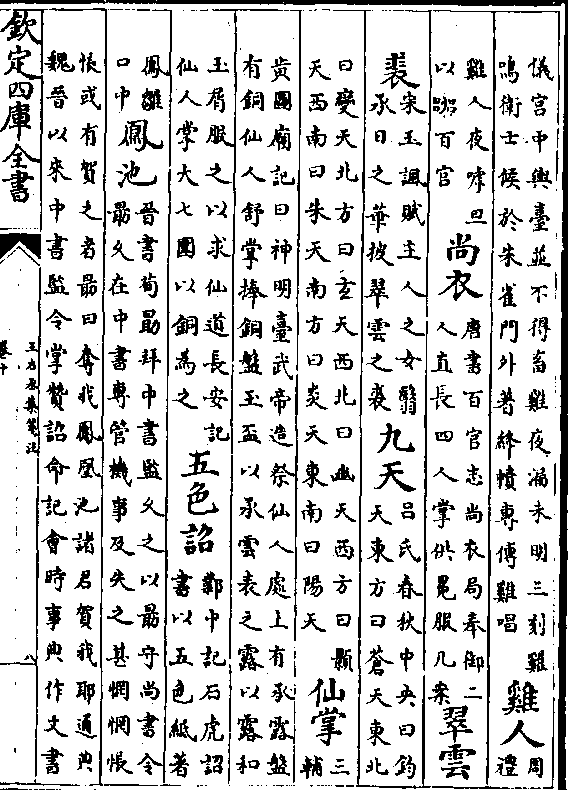 儀宮中輿臺並不得畜雞夜漏未明三刻雞
鳴衛士候於朱雀門外著絳幘專傳雞唱
雞人
周
禮
雞人夜嘑旦
以嘂百官
尚衣
唐書百官志尚衣局奉御二
人直長四人掌供冕服几案
翠雲
裘
宋玉諷賦主人之女翳
承日之華披翠雲之裘
九天
呂氏春秋中央曰鈞
天東方曰蒼天東北
曰變天北方曰玄天西北曰幽天西方曰顥
天西南曰朱天南方曰炎天東南曰陽天
仙掌
三
輔
黄圖廟記曰神明臺武帝造祭仙人處上有承露盤
有銅仙人舒掌捧銅盤玉盃以承雲表之露以露和
玉屑服之以求仙道長安記
仙人掌大七圍以銅為之
五色詔
鄴中記石虎詔
書以五色紙著
鳳雛
口中
鳳池
晉書荀勖拜中書監久之以勖守尚書令
勖久在中書專管機事及失之甚惘惘悵
悵或有賀之者勖曰奪我鳳凰池諸君賀我耶通典
魏晉以來中書監令掌贊詔命記會時事典作文書
欽定四庫全書
王右丞集箋注
卷十
八